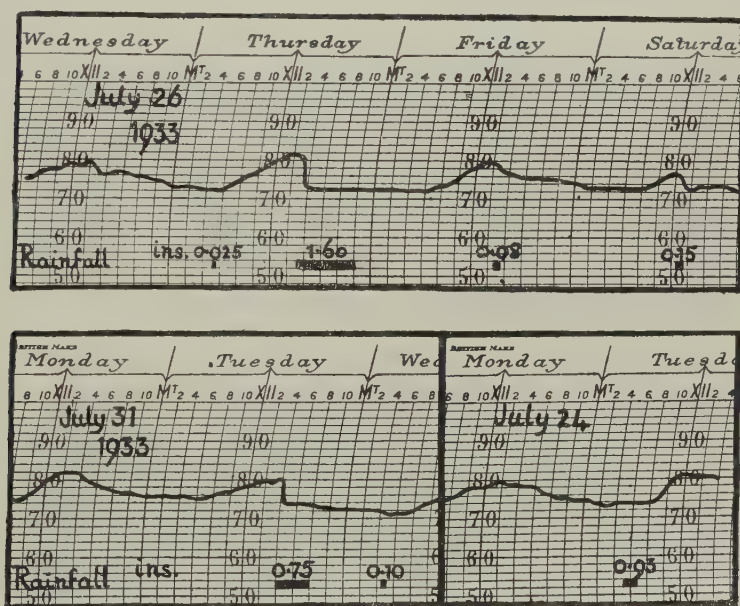 Wednesday Thursday Friday Saturday
4 6 8 10 XII 2 4 6 8 10 MT 2 4 6 8 10 XII 2 4 6 8 10 MT 2 4 6 8 10 XII 2 4 6 8 10 MT 2 4 6 8 10 XII 2 4 6 8
July 26
90 90 90 90
1933
80 80 80 80
70 70 70 70
60 60 60 60
Rainfall ins. 0.025 1.60 0.08 0.15
50 50 50 50
BRITISH MAKE
Monday Tuesday Wed
8 10 XII 2 4 6 8 10 MT 2 4 6 8 10 XII 2 4 6 8 10 MT 2 4 6 8
July 31
90 90
1933
80 80
70 70
60 60 6
Rainfall ins. 0.75 0.10
50 50 5
BRITISH MAKE
Monday Tuesd
6 8 10 XII 2 4 6 8 10 MT 2 4 6 8 10 XII 2 4
July 24
90 90
80 80
70 70
60 60
0.03
50 50